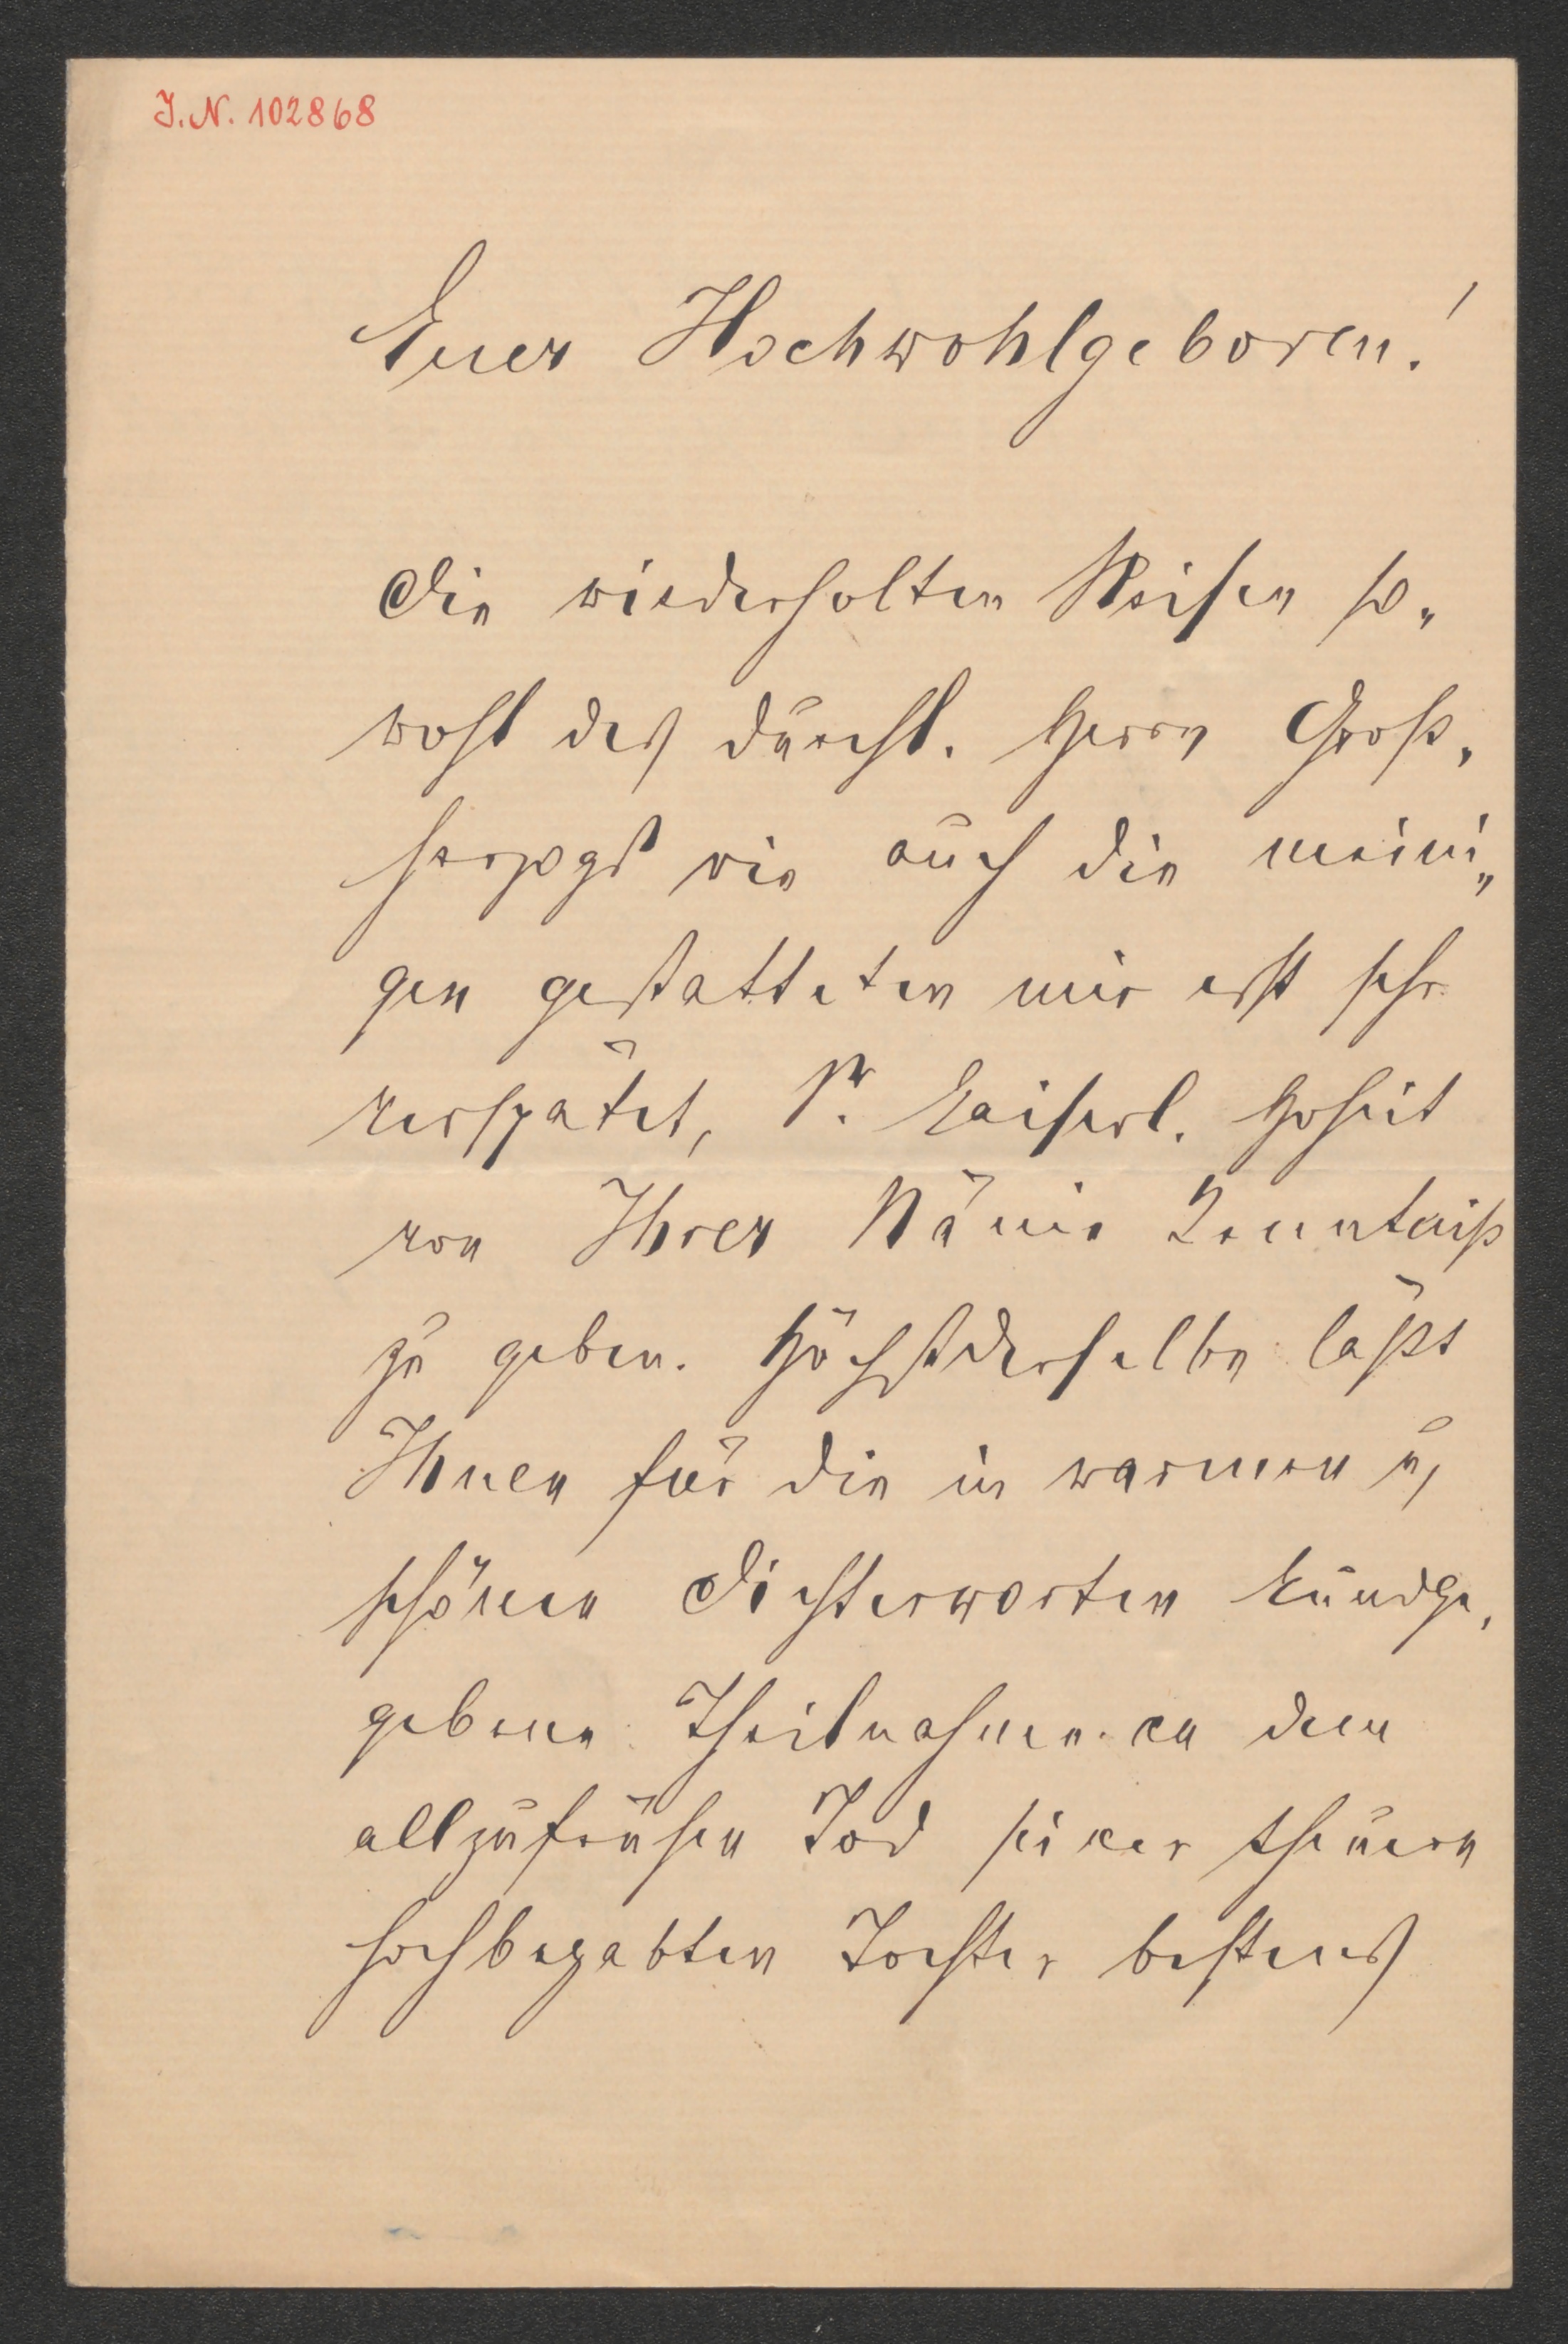 J.N. 102868
Euer Hochwohlgeboren!
Die wiederholten Reisen so„
wohl des durchl. Herrn Groß„
herzogs wie auch die meini„
gen gestatteten mir erst sehr
verspätet, Sr. Kaiserl. Hoheit
von Ihrer Nänie Kenntniß
zu geben. Höchstderselbe läßt
Ihnen für die in warmen u,
schönen Dichterworten kundge„
gebene Theilnahme an dem
allzufrühen Tod seiner theuern
hochbegabten Tochter bestens